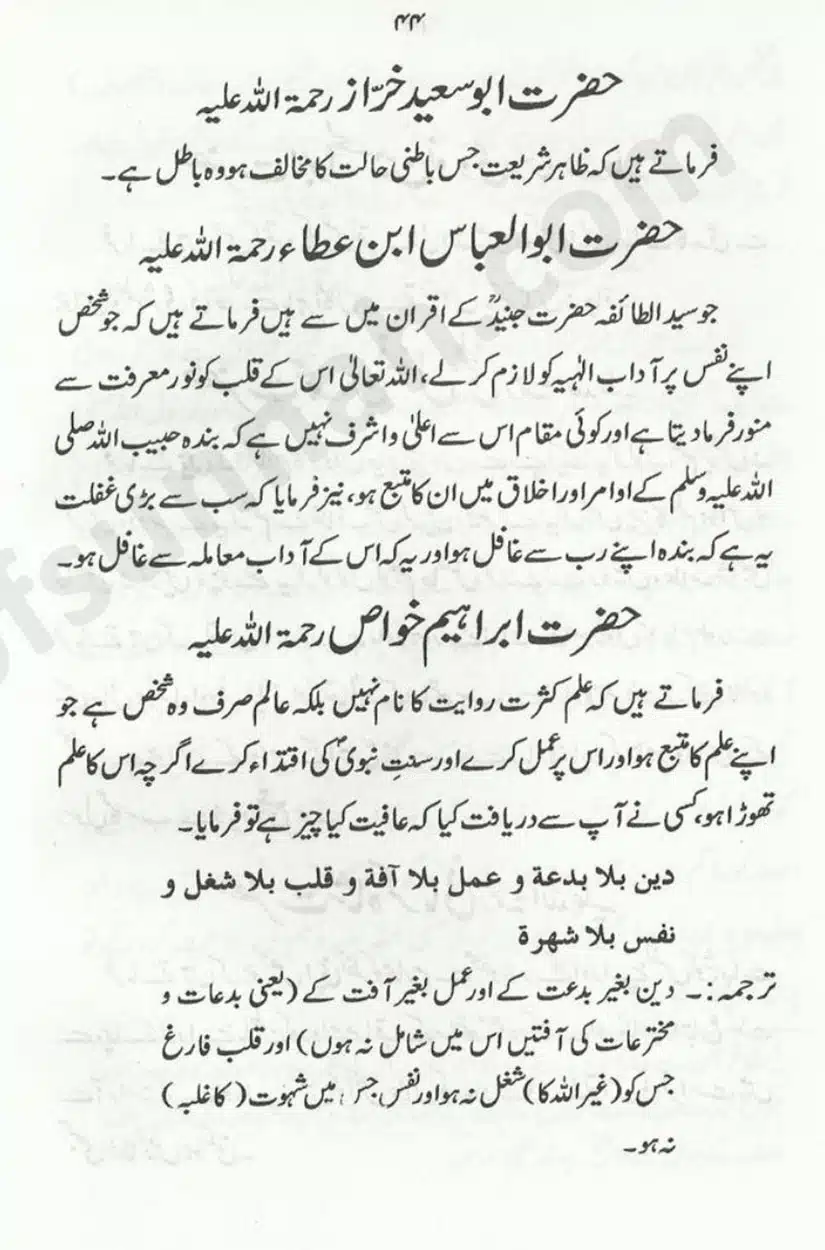 ۴۴
حضرت ابو سعید خرّاز رحمۃ اللہ علیہ
فرماتے ہیں کہ ظاہر شریعت جس باطنی حالت کا مخالف ہو وہ باطل ہے۔
حضرت ابو العباس ابن عطاء رحمۃ اللہ علیہ
جو سید الطائفہ حضرت جنیدؒ کے اقران میں سے ہیں فرماتے ہیں کہ جو شخص
اپنے نفس پر آداب الٰہیہ کو لازم کر لے، اللہ تعالیٰ اس کے قلب کو نور معرفت سے
منور فرما دیتا ہے اور کوئی مقام اس سے اعلیٰ و اشرف نہیں ہے کہ بندہ حبیب اللہ صلی
اللہ علیہ وسلم کے اوامر اور اخلاق میں ان کا متبع ہو، نیز فرمایا کہ سب سے بڑی غفلت
یہ ہے کہ بندہ اپنے رب سے غافل ہو اور یہ کہ اس کے آداب معاملہ سے غافل ہو۔
حضرت ابراہیم خواص رحمۃ اللہ علیہ
فرماتے ہیں کہ علم کثرت روایت کا نام نہیں بلکہ عالم صرف وہ شخص ہے جو
اپنے علم کا متبع ہو اور اس پر عمل کرے اور سنتِ نبویؐ کی اقتداء کرے اگرچہ اس کا علم
تھوڑا ہو، کسی نے آپ سے دریافت کیا کہ عافیت کیا چیز ہے تو فرمایا۔
دین بلا بدعة و عمل بلا آفة و قلب بلا شغل و
نفس بلا شهرة
ترجمہ:۔ دین بغیر بدعت کے اور عمل بغیر آفت کے (یعنی بدعات و
مخترعات کی آفتیں اس میں شامل نہ ہوں) اور قلب فارغ
جس کو (غیر اللہ کا) شغل نہ ہو اور نفس جس میں شہوت (کا غلبہ)
نہ ہو۔